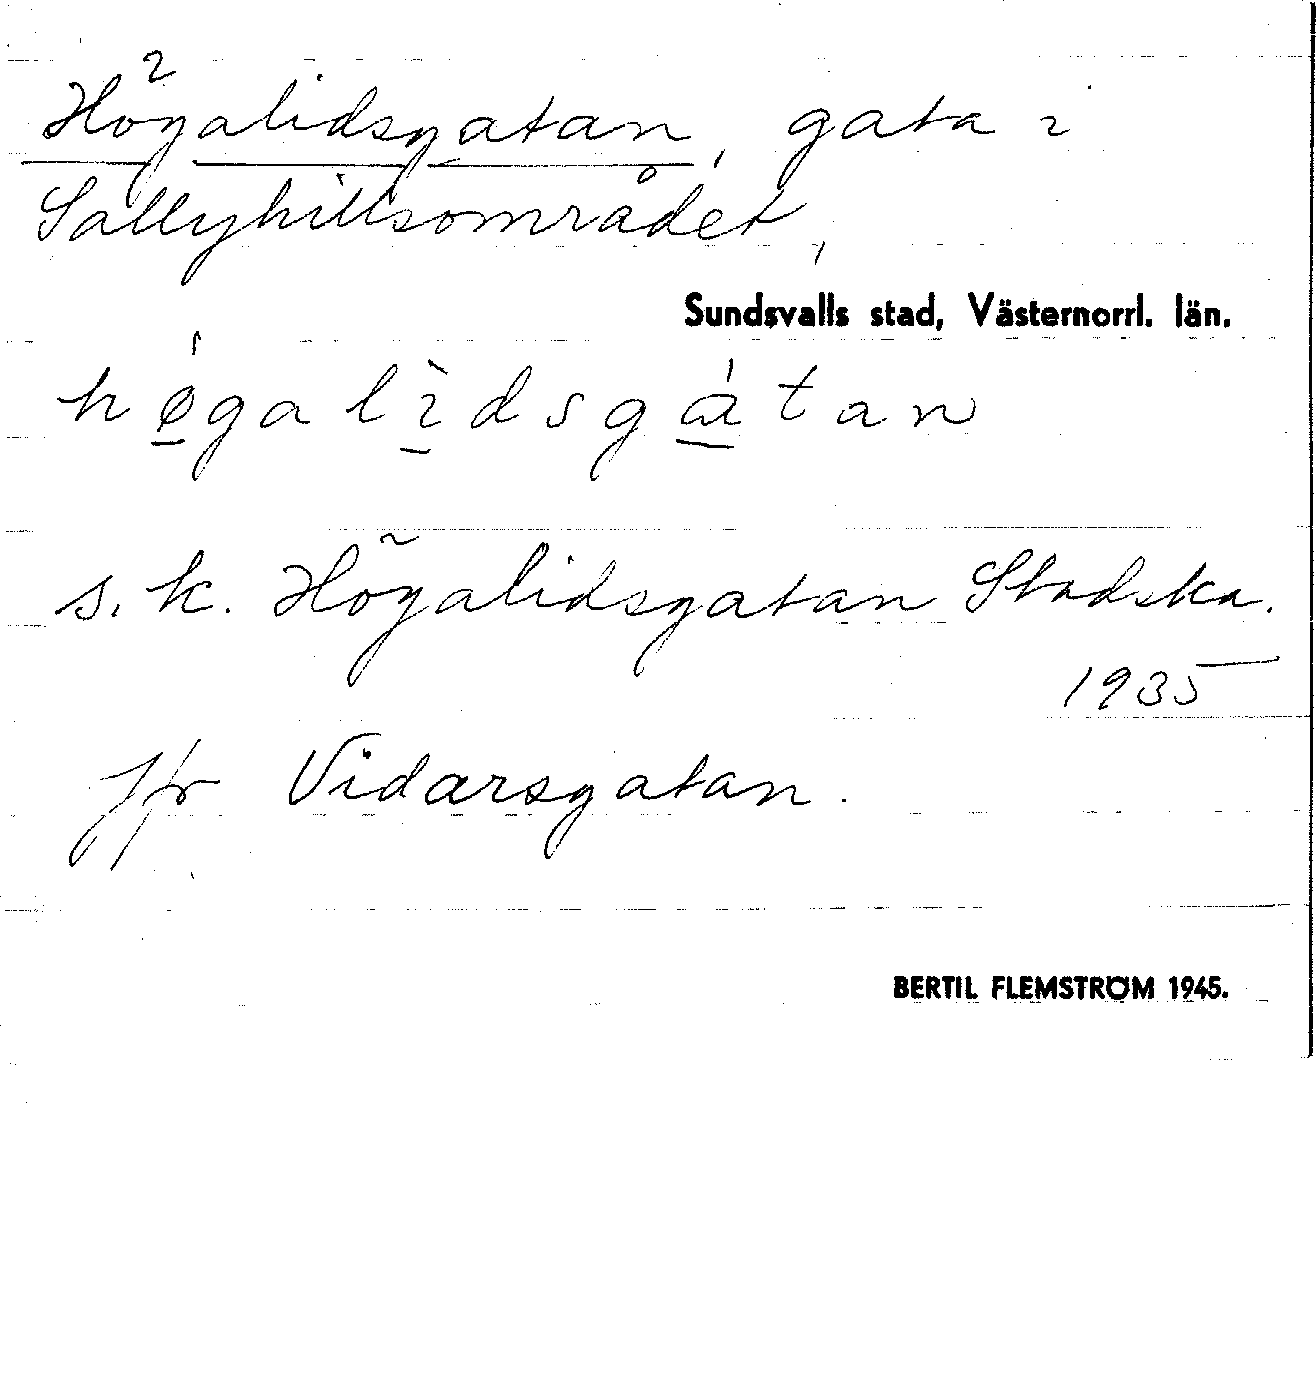 Högalidsgatan, gata i
Sallyhillsområdet,
Sundsvalls stad, Västernorrl. län.
hǿ̱galì̱dsgá̱tan
s.k. Högalidsgatan Stadska.
1935
Jfr Vidarsgatan.
BERTIL FLEMSTRÖM 1945.